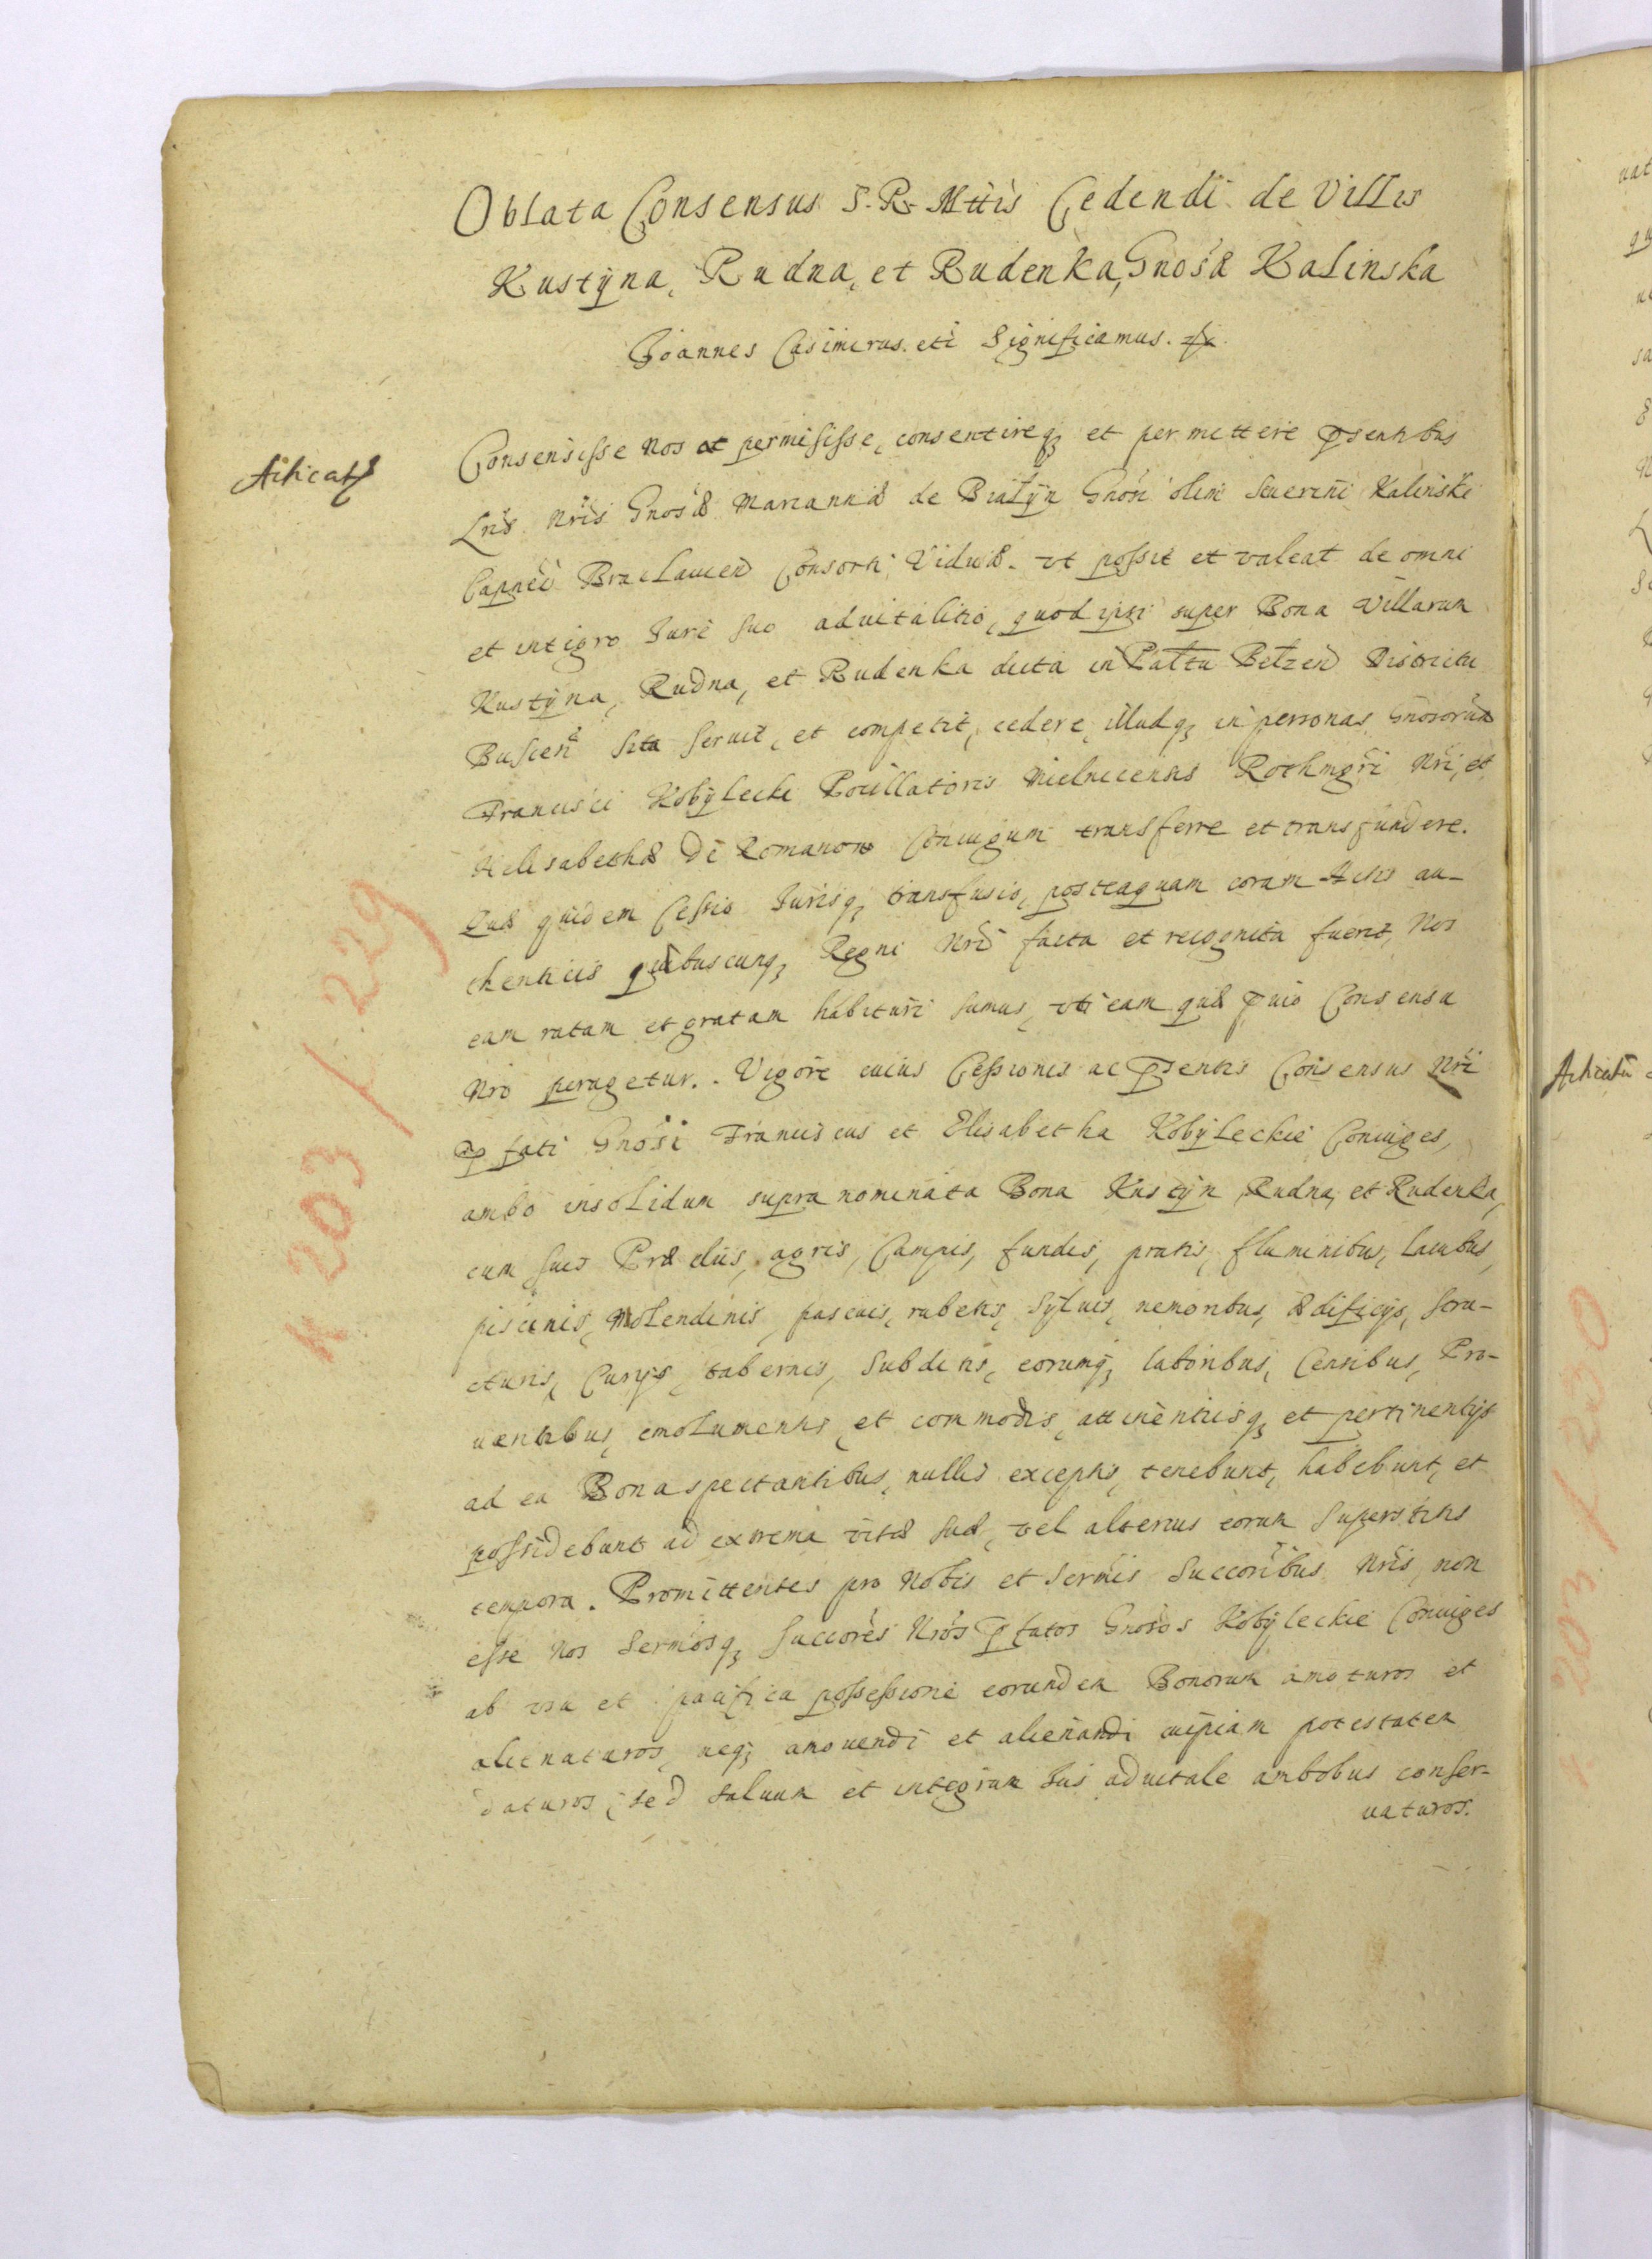 Oblata Consensus S. R. Mttis Cedendi de Villis
Kustÿna, Rudna, et Rudenka, Gnosæ Kalinska
Joannes Casimirus. etc Significamus.
Consensisse Nos et permisisse, consentireq; et permittere psentibus
Lris Nris Gnosæ Mariannæ de Bialÿn Gnosi olim Seuerini Kalinski
Capnei Braclauien Consorti Viduæ. vt possit et valeat de omni
et integro Jure suo aduitalitio, quod ipsi super Bona Villarum
Kustÿna, Rudna, et Rudenka dicta in Palttu Belzen Districtu
Buscen sita seruit, et competit, cedere, illudq; in personas Gnosorum
Francisci Kobÿlecki Pocillatoris Mielnicensis Rothmgri Nri, et
Helisabethæ de Romanow Coniugum transferre et transfundere.
Quæ quidem Cessio Jurisq; transfusio, posteaquam coram Actis au-
thenticis quibuscunq; Regni Nri facta et recognita fuerit, Nos
eam ratam et gratam habituri sumus, vti eam quæ puio Consensu
Nro peragetur. Vigore cuius Cessionis ac psentis Consensus Nri
pfati Gnosi Franciscus et Elisabetha Kobÿleckie Coniuges,
ambo insolidum supra nominata Bona Kustÿn, Rudna, et Rudenka,
cum suis Prædiis, agris, Campis, fundis, pratis, fluminibus, lacubus,
piscinis, Molendinis, pascuis, rubetis, sÿluis, nemoribus, ædificijs, stru-
cturis, Curijs, tabernis, Subditis, eorumq; laboribus, Censibus, Pro-
uentibus, emolumentis, et commodis, attinentiisq; et pertinentijs
ad ea Bona spectantibus, nullis exceptis, tenebunt, habebunt, et
possidebunt ad extrema vitæ suæ, vel alterius eorum Superstitis
tempora. Promittentes pro Nobis et Sermis Succoribus Nris, non
esse Nos Sermosq; Succores Nros pfatos Gnosos Kobÿleckie Coniuges
ab vsu et pacifica possessione eorundem Bonorum amoturos et
alienaturos, neq; amouendi et alienandi cuipiam potestatem
daturos, sed saluum et integrum Jus aduitale ambobus conser-
uaturos.
K 203 / 229